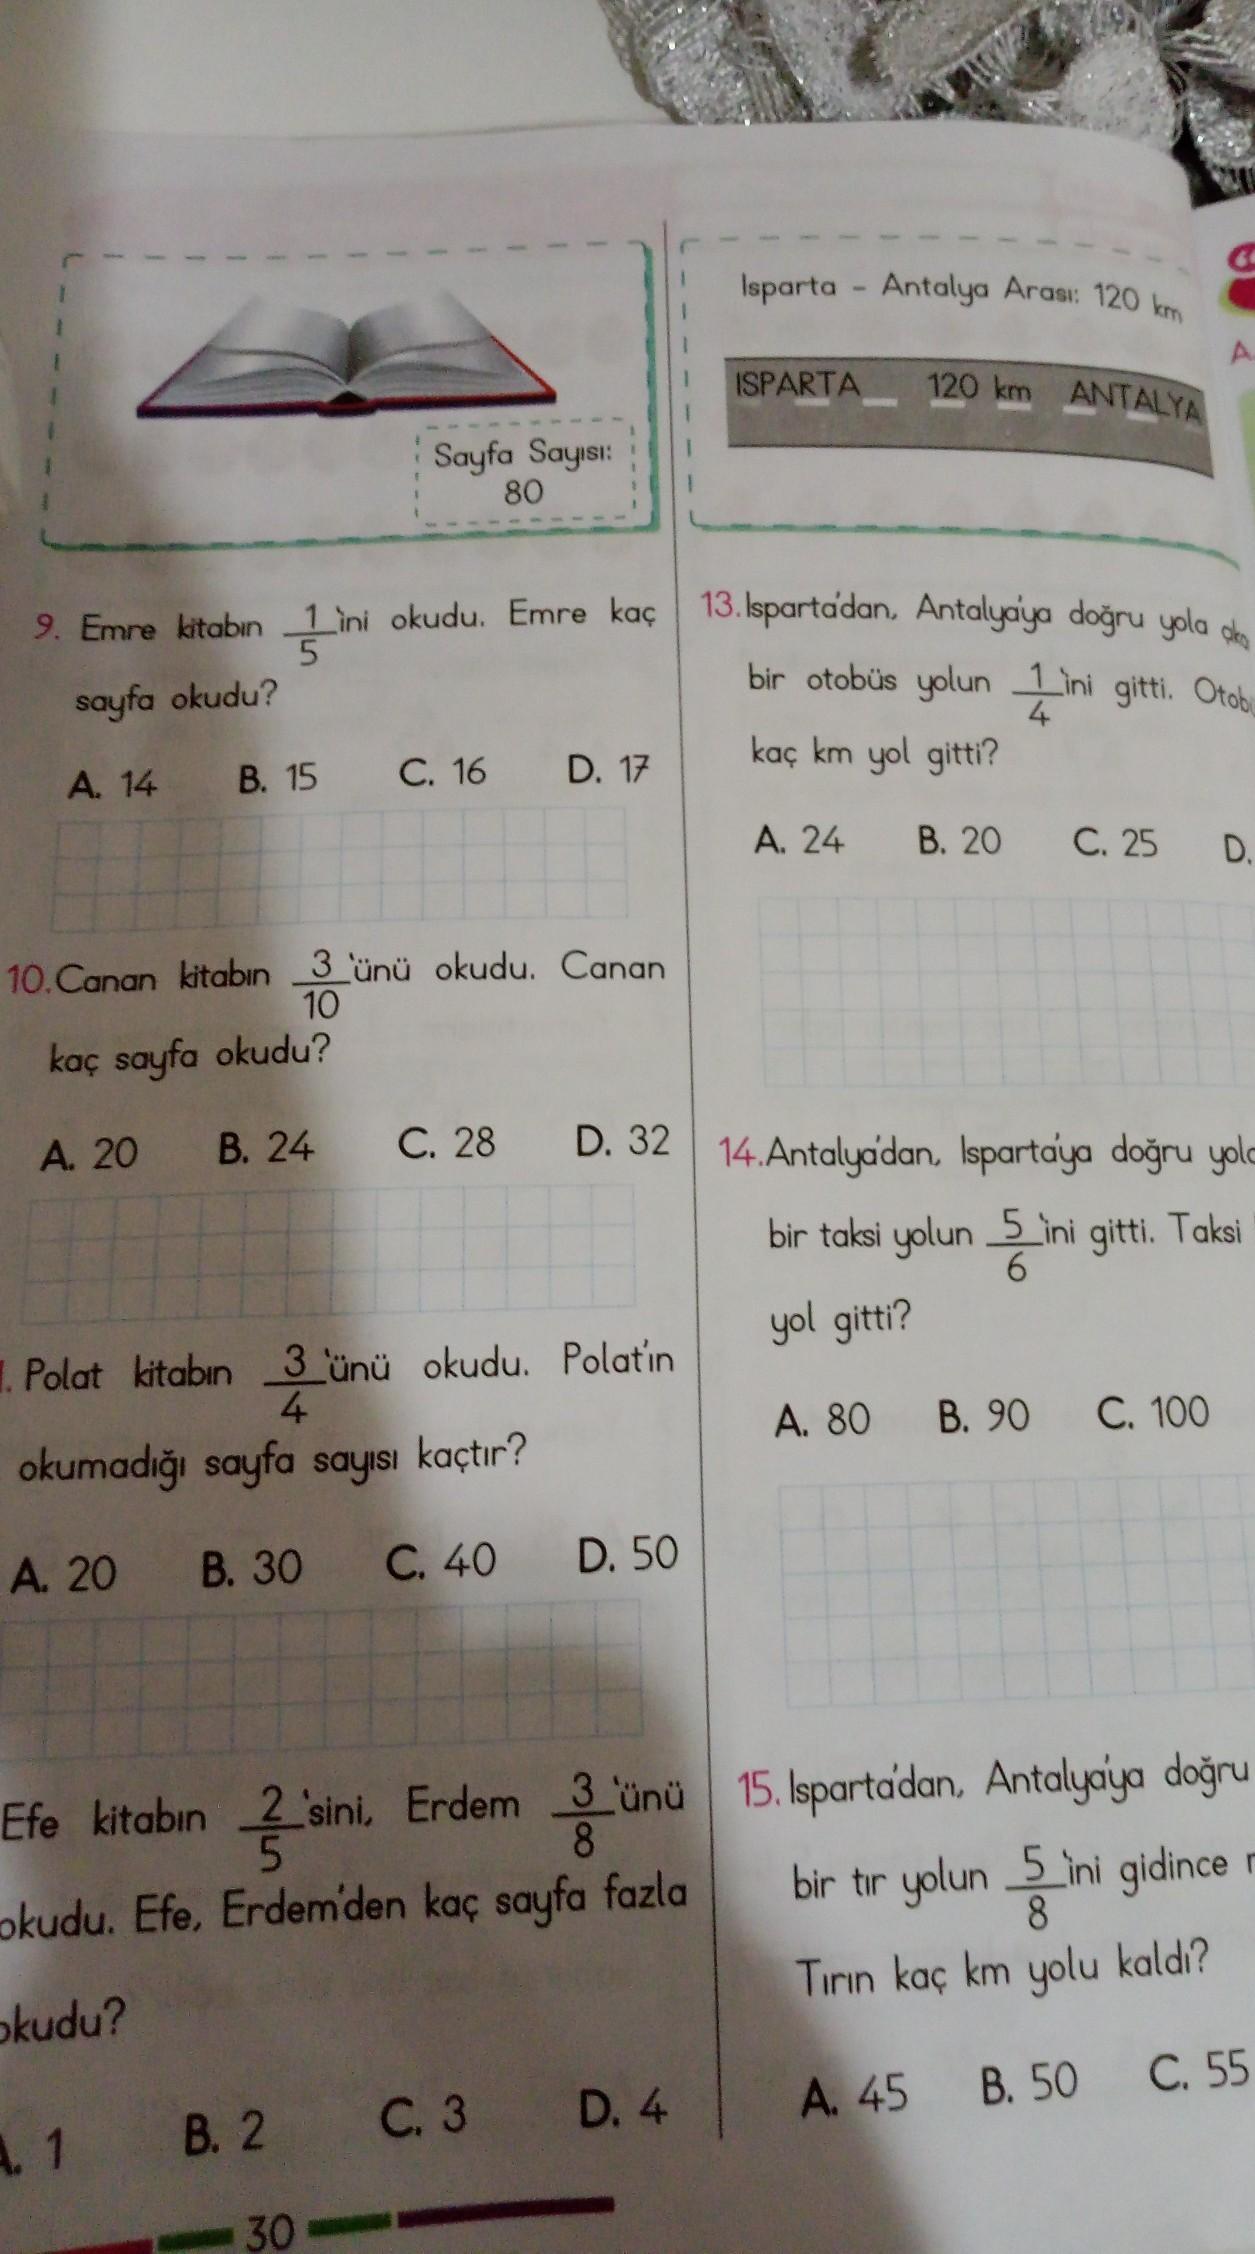 Sayfa Sayısı:
80
9. Emre kitabın 1/5 'ini okudu. Emre kaç
sayfa okudu?
A. 14 B. 15 C. 16 D. 17
10. Canan kitabın 3/10 'ünü okudu. Canan
kaç sayfa okudu?
A. 20 B. 24 C. 28 D. 32
. Polat kitabın 3/4 'ünü okudu. Polat'ın
okumadığı sayfa sayısı kaçtır?
A. 20 B. 30 C. 40 D. 50
Efe kitabın 2/5 'sini, Erdem 3/8 'ünü
okudu. Efe, Erdem'den kaç sayfa fazla
okudu?
A. 1 B. 2 C. 3 D. 4
30
Isparta - Antalya Arası: 120 km
ISPARTA 120 km ANTALYA
13. Isparta'dan, Antalya'ya doğru yola
bir otobüs yolun 1/4 'ini gitti.
kaç km yol gitti?
A. 24 B. 20 C. 25 D.
14. Antalya'dan, Isparta'ya doğru
bir taksi yolun 5/6 'ini gitti. Taksi
yol gitti?
A. 80 B. 90 C. 100
15. Isparta'dan, Antalya'ya doğru
bir tır yolun 5/8 'ini gidince
Tırın kaç km yolu kaldı?
A. 45 B. 50 C. 55